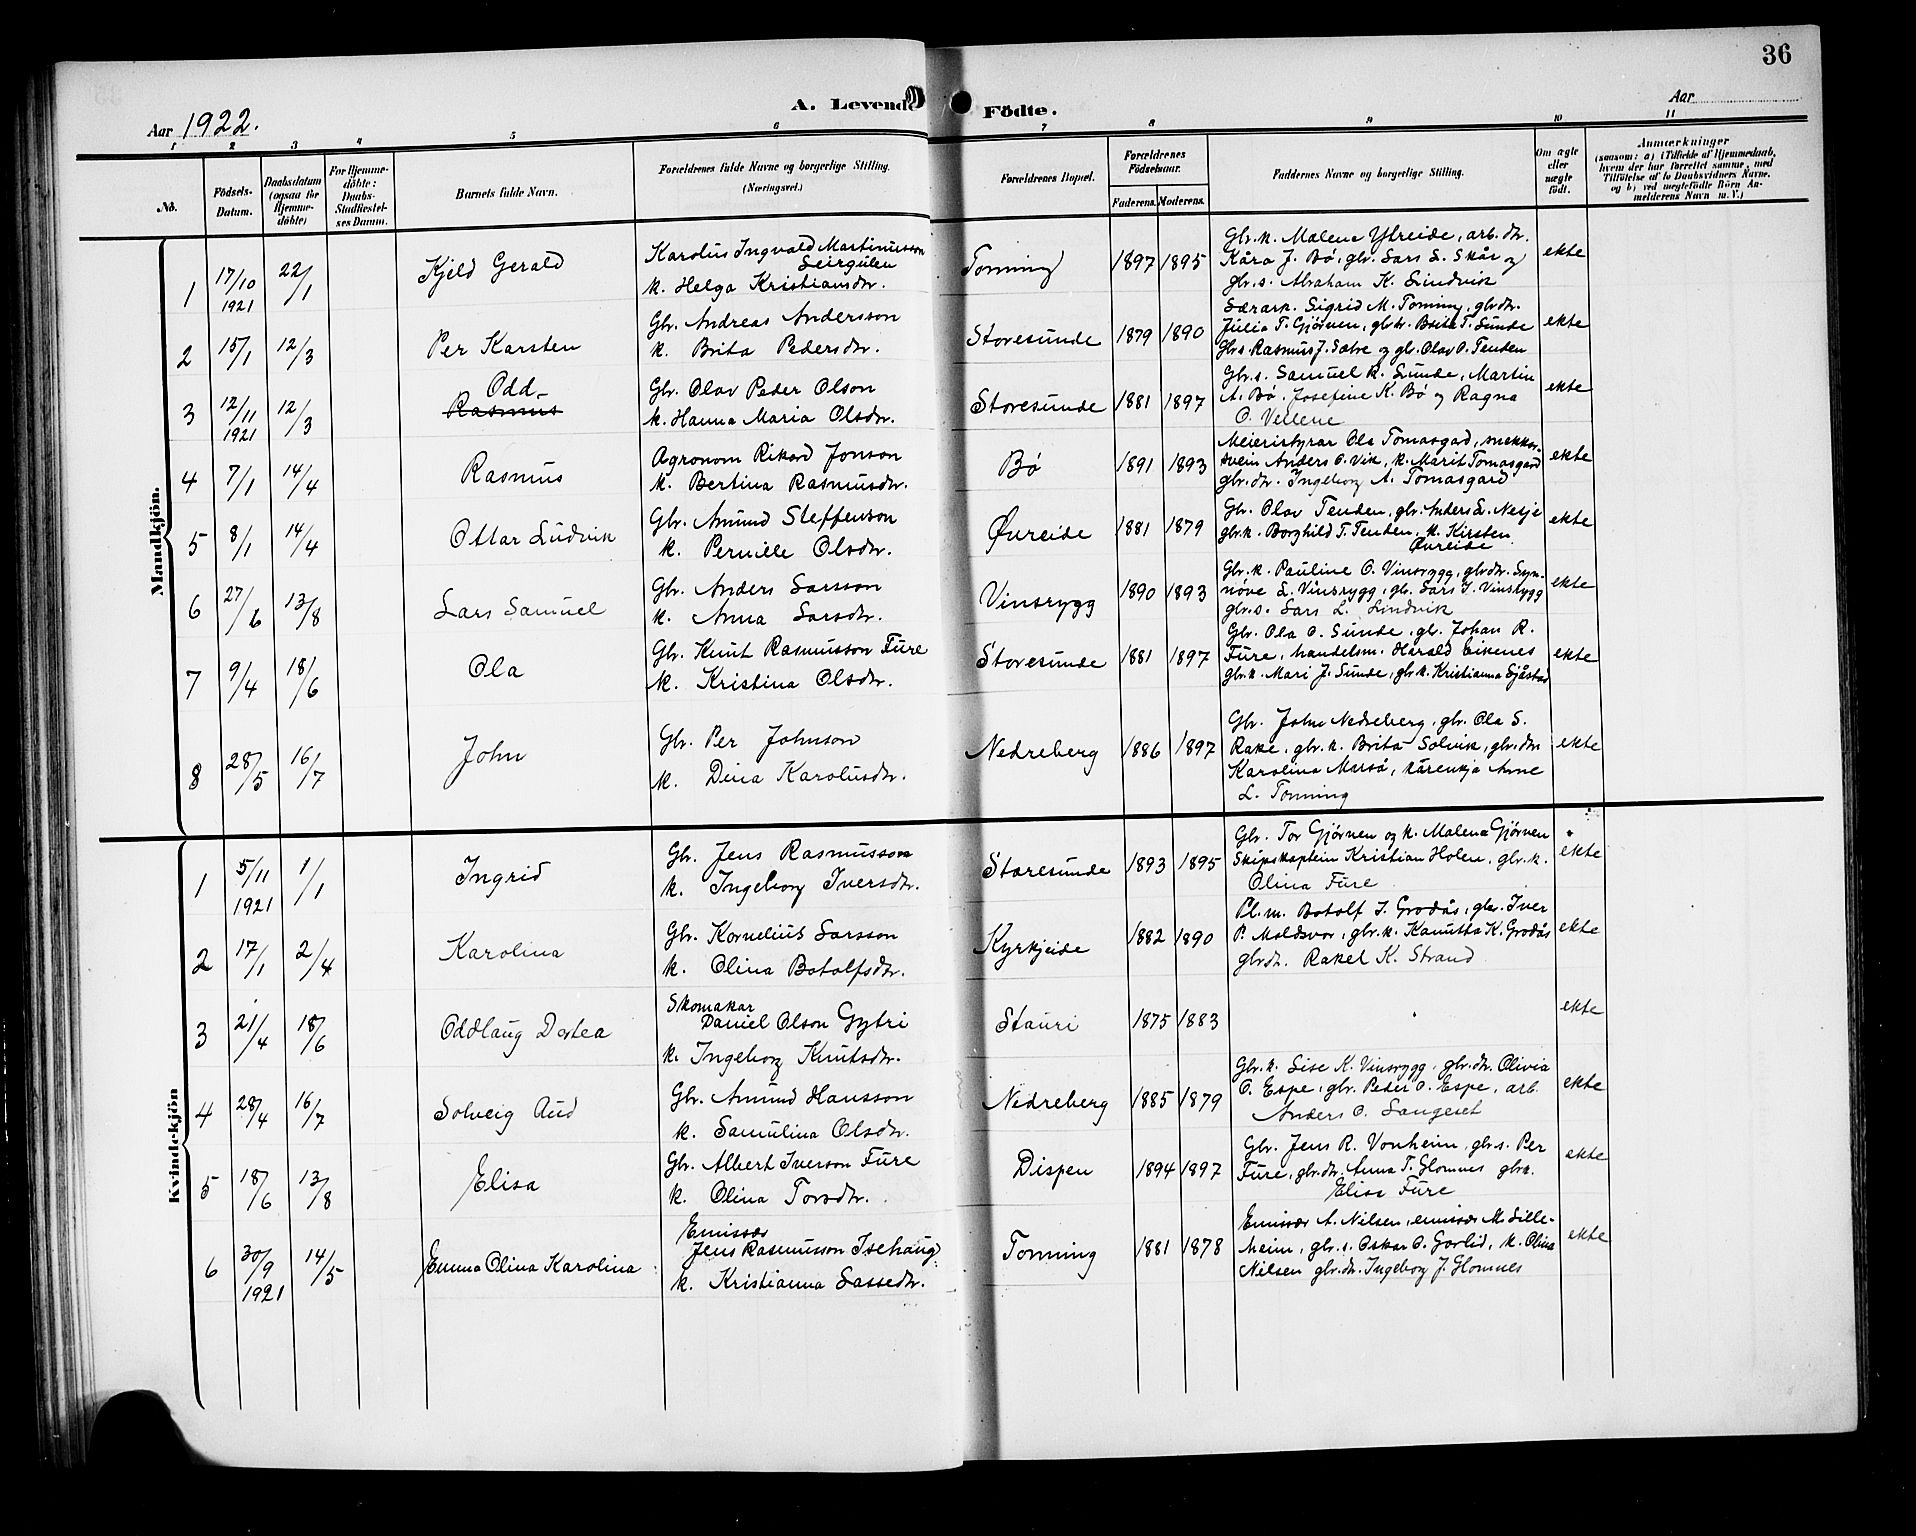 36
A. Levende Födte.
Aar 1922.
Aar
1 2 3 4 5 6 7 8 9 10 11
No.
Födsels-Datum.
Daabsdatum (ogsaa for Hjemme-döbte)
For Hjemme-döbte: Daabs-Stadfæstel-ses Datum.
Barnets fulde Navn.
Forældrenes fulde Navne og borgerlige Stilling. (Næringsvei.)
Forældrenes Bopæl.
Forældrenes Födselsaar.
Faderens. Moderens.
Faddernes Navne og borgerlige Stilling.
Om ægte eller uægte födt.
Anmærkninger
(saasom: a) i Tilfælde af Hjemmedaab, hvem der har forrettet samme, med Tilföielse af to Daabsvidners Navne, og b) ved uægtefödte Börn Anmelderens Navn m. V.)
Mandkjön.
1 17/10 1921 22/1 Kjeld Gerald
Karolus Ingvald Martinusson
Leirgulen
k. Helga Kristiansdtr.
Tonning 1897 1895
Gbr.k. Malene Ytreide, arb.dr.
Kåra J. Bø, gbr. Lars L. Skår og
gbr.s. Abraham K. Lindvik
ekte
2 15/1 12/3 Per Karsten
Gbr. Andreas Andersson
k. Brita Pedersdtr.
Storesunde 1879 1890
Lærark. Sigrid M. Tonning, gbrdtr.
Julia T. Gjørven, gbrdr. Brita T. Sunde
Gbrs. Rasmus J. Sætre og gbr. Olav O. Tenden
ekte
3 12/11 1921 12/3 Odd
Rasmus
Gbr. Olav Peder Olson
k. Hanna Maria Olsdtr.
Storesunde 1881 1897
Gbr.s. Samuel R. Sunde, Martin
A. Bø, Josefine K. Bø og Ragna
O. Vellene
ekte
4 7/1 14/4 Rasmus
Agronom Rikard Jonson
k. Bertina Rasmusdtr.
Bø 1891 1893
Meieristyrar Ola Tomasgard,
svein Anders O. Vik, k. Marit Tomasgard
gbr.dtr. Ingeborg A. Tomasgard
ekte
5 8/1 14/4 Ottar Ludvik
Gbr. Amund Steffenson
k. Pernille Olsdtr.
Øvreide 1881 1879
Gbr. Olav Tenden, gbr. Anders L. Nesje
gbr.k. Borghild T. Tenden, k. Kirsten
Øvreide
ekte
6 27/6 13/8 Lars Samuel
Gbr. Anders Larsson
k. Anna Larsdtr.
Vinsrygg 1890 1893
Gbr.k. Pauline O. Vinsrygg, gbrdtr. Syn-
nøve L. Vinsrygg, gbr. Lars I. Vinsrygg
gbr.s. Lars L. Lindvik
ekte
7 9/4 18/6 Ola
Gbr. Knut Rasmusson Fure
k. Kristina Olsdtr.
Storesunde 1881 1897
Gbr. Ola O. Sunde, gbr. Johan R.
Fure, handelsm. Harald Eikenes
gbr.k. Mari J. Sunde, gbr.k. Kristianna Sjåstad
ekte
8 28/5 16/7 John
Gbr. Per Johnson
k. Dina Karolusdtr.
Nedreberg 1886 1897
Gbr. John Nedreberg, gbr. Ola S.
Rake, gbr.k. Brita Solvik, gbr.dtr.
Karolina Marså, Arne
L. Tonning
ekte
Kvindekjön
1 5/11 1921 1/1 Ingrid
Gbr. Jens Rasmusson
k. Ingeborg Iversdtr.
Storesunde 1893 1895
Gbr. Tor Gjørven og k. Malene Gjørven
Skipskaptein Kristian Holen, gbr.k.
Olina Fure
ekte
2 17/1 2/4 Karolina
Gbr. Kornelius Larsson
k. Olina Botolfsdtr.
Kyrkjeide 1882 1890
Pl.m. Botolf I. Grodås, gbr. Iver
P. Moldsvor, gbr.k. Kanutta K. Grodås
gbrdtr. Rakel K. Strand
ekte
3 21/4 18/6 Oddlaug Dortea
Skomakar
Daniel Olson Gytri
k. Ingeborg Knutsdtr.
Stauri 1875 1883
ekte
4 28/4 16/7 Solveig Aud
Gbr. Amund Hansson
k. Samulina Olsdtr.
Nedreberg 1885 1879
Gbr.k. Lise K. Vinsrygg, gbr.dtr. Olivia
O. Espe, gbr. Peder O. Espe, arb.
Anders O. Langeset
ekte
5 18/6 13/8 Elisa
Gbr. Albert Iverson Fure
k. Olina Torsdtr.
Dispen 1894 1897
Gbr. Jens R. Vonheim, gbr.s. Per
Fure, gbr.dtr. Anna T. Glomnes gbr.k.
Elise Fure
ekte
6 30/9 1921 14/5 Emma Olina Karolina
Emissær
Jens Rasmusson Isehaug
k. Kristianna Lassedtr.
Tonning 1881 1878
Emissær A. Nilsen, emissær M. Lille-
heim, gbr.s. Oskar O. Gorlid, k. Olina
Nilsen gbr.dtr. Ingeborg J. Glomnes
ekte